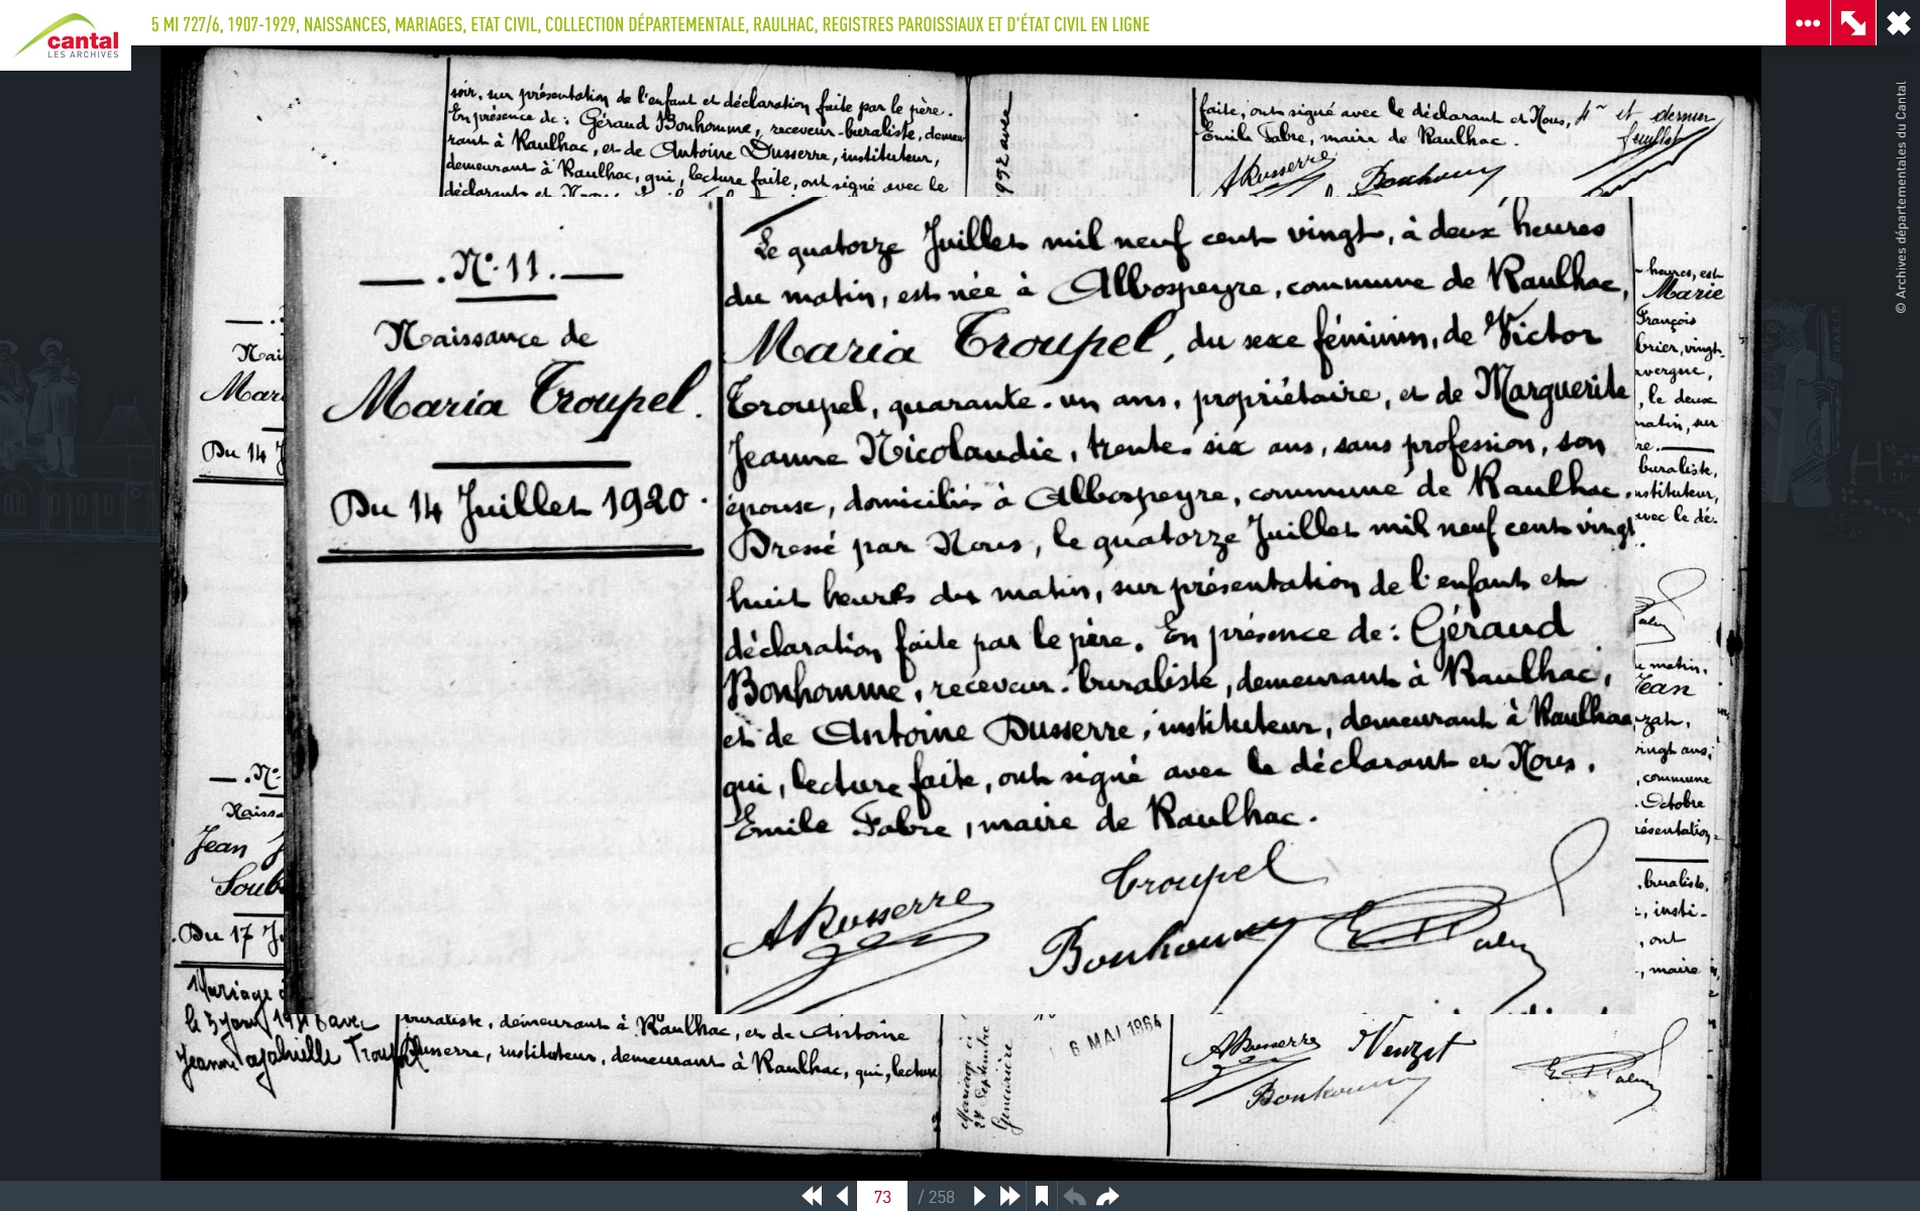 cantal
LES ARCHIVES
5 MI 727/6, 1907-1929, NAISSANCES, MARIAGES, ETAT CIVIL, COLLECTION DÉPARTEMENTALE, RAULHAC, REGISTRES PAROISSIAUX ET D'ÉTAT CIVIL EN LIGNE
© Archives départementales du Cantal
soir, sur présentation de l'enfant et déclaration faite par le père.
En présence de: Géraud Bonhomme, receveur-buraliste, demeu-
rant à Raulhac, et de Antoine Dusserre, instituteur,
demeurant à Raulhac, qui, lecture faite, ont signé avec le
déclarant et Nous
1952 avec
faite, ont signé avec le déclarant et Nous,
Emile Fabre, maire de Raulhac.
et dernier
feuillet
ADusserre
Bonhomme
N° 11.
Naissance de
Maria Troupel.
Du 14 Juillet 1920.
Le quatorze Juillet mil neuf cent vingt, à deux heures
du matin, est née à Albospeyre, commune de Raulhac,
Maria Troupel, du sexe féminin, de Victor
Troupel, quarante-un ans, propriétaire, et de Marguerite
Jeanne Nicolaudie, trente-six ans, sans profession, son
épouse, domiciliés à Albospeyre, commune de Raulhac.
Dressé par Nous, le quatorze Juillet mil neuf cent vingt
huit heures du matin, sur présentation de l'enfant et
déclaration faite par le père. En présence de: Géraud
Bonhomme, receveur-buraliste, demeurant à Raulhac,
et de Antoine Dusserre, instituteur, demeurant à Raulhac
qui, lecture faite, ont signé avec le déclarant et Nous,
Emile Fabre, maire de Raulhac.
Troupel
ADusserre
Bonhomme
E Fabre
Nai
Mari
Du 14 J
N°
Naissa
Jean J
Soub
Du 17 J
Mariage
Jeanne Gabrielle Troupel
heures, est
Marie
François
vingt-
le deux
matin, sur
re.
buraliste,
instituteur,
avec le dé-
matin,
Jean
vingt ans,
commune
Octobre
présentation
buraliste,
insti-
ont
maire
buraliste, demeurant à Raulhac, et de Antoine
Dusserre, instituteur, demeurant à Raulhac, qui, lecture
Mariage
Septembre
6 MAI 1964
ADusserre
Bonhomme
73 / 258